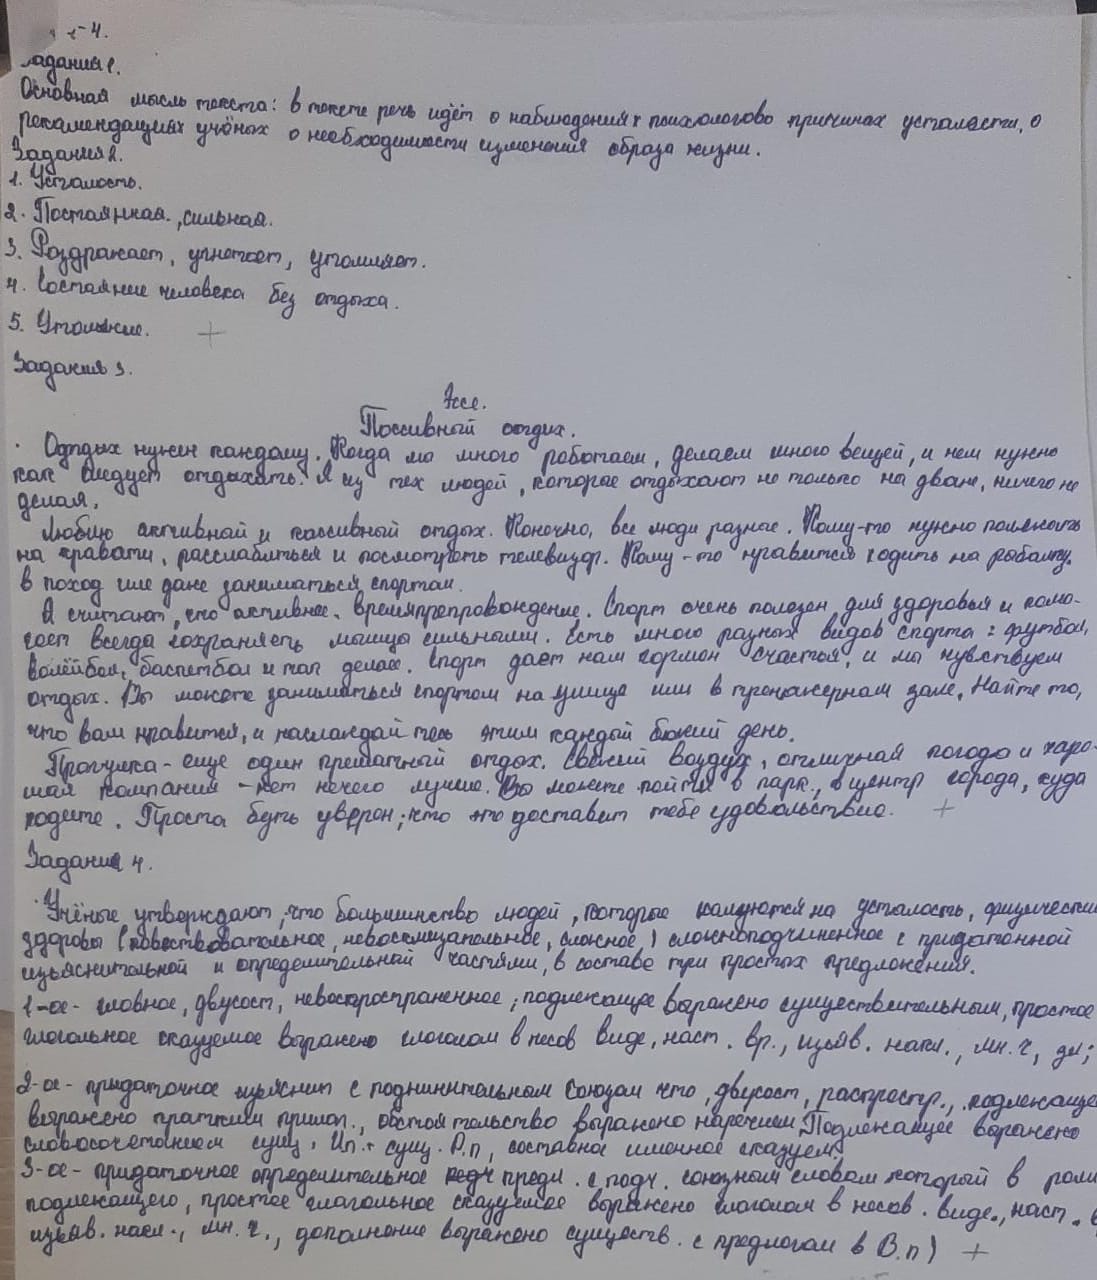 -4.
Задания 1.
Основная мысль текста: в тексте речь идёт о наблюдениях психологово причинах усталости, о
рекамендациях учёных о необходимости изменения образа жизни.
Задания 2.
1. Усталость.
2. Постаянная, сильная.
3. Роздражает, угнетает, утомляет.
4. Состаяние человека без отдыха.
5. Утомление. +
Задания 3.
Эссе.
Поссивный отдих.
Отдых нужен каждому. Когда мы много роботаем, делаем много вещей, и нем нужно
как следует отдыхать. Я из тех людей, которое отдыхают не только на дване, ничего не
делая.
Люблю активный и пассивный отдых. Конечно, все люди разные. Кому-то нужно полежать
на кравати, расслабиться и посмотреть телевизор. Кому-то нравится ходить на рабалку,
в поход или даже заниматься спортам.
Я считают, что активнее. времяпрепровождение. Спорт очень полезен для здоровья и помо-
гает всегда сохранять мышцы сильными. Есть много разных видов спорта: футбол,
волейбол, баскетбол и так далее. Спорт дает нам гормон счастья, и мы чувствуем
отдых. Вы можете заниматься спортом на улице или в тренажерном зале. Найте то,
что вам нравится, и наслаждайтесь этим каждый божий день.
Прогулка - еще один прекрасный отдых. Свежий воздух, отличная погода и харо-
шая компания - нет нечего лучше. Вы можете пойти в парк, в центр города, куда
ходите. Проста будь уверен, что это доставит тебе удовольствие. +
Задание 4.
Учёные утверждают, что большинство людей, которые жалуются на усталость, физически
здоровы (повествовательное, невосклицательное, сложное) сложноподчиненное с придаточной
изъяснительной и определительной частями, в составе три простых предложения.
1-ое - главное, двусост, невоспроспраненное; подлежащее выражено существительным, простое
глагольное сказуемое выражено глаголом в несов виде, наст. вр., изъяв. накл., мн. ч,
2-ое - придаточное изъяснит с подчинительным союзом что, двусост, распростр., подлежаще
выражено кратким прилаг., обстоятельство выражено наречием. Подлежащее выражено
словосочетанием сущ. Ип. + сущ. Р.п, составное именное сказуем.
3-ое - придаточное определительное предл. с подч. союзным словом которой в роли
подлежащего, простое глагольное сказуемое выражено глаголом в несов. виде, наст.
изъяв. накл., мн. ч., дополнение выражено существ. с предлогам в В.п) +